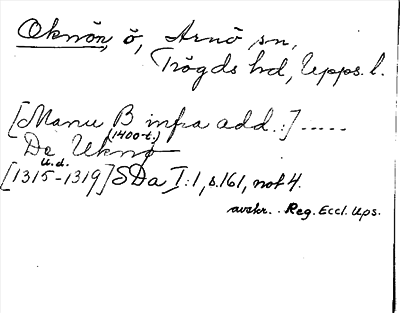 Oknön, ö, Arnö sn,
Trögds hd, Upps. l.
[Manu B infra add.:] .....
(1400-t.)
De Uknø
u.d.
[1315-1319] SDa I:1, s.161, not 4.
avskr. . Reg. Eccl. Ups.